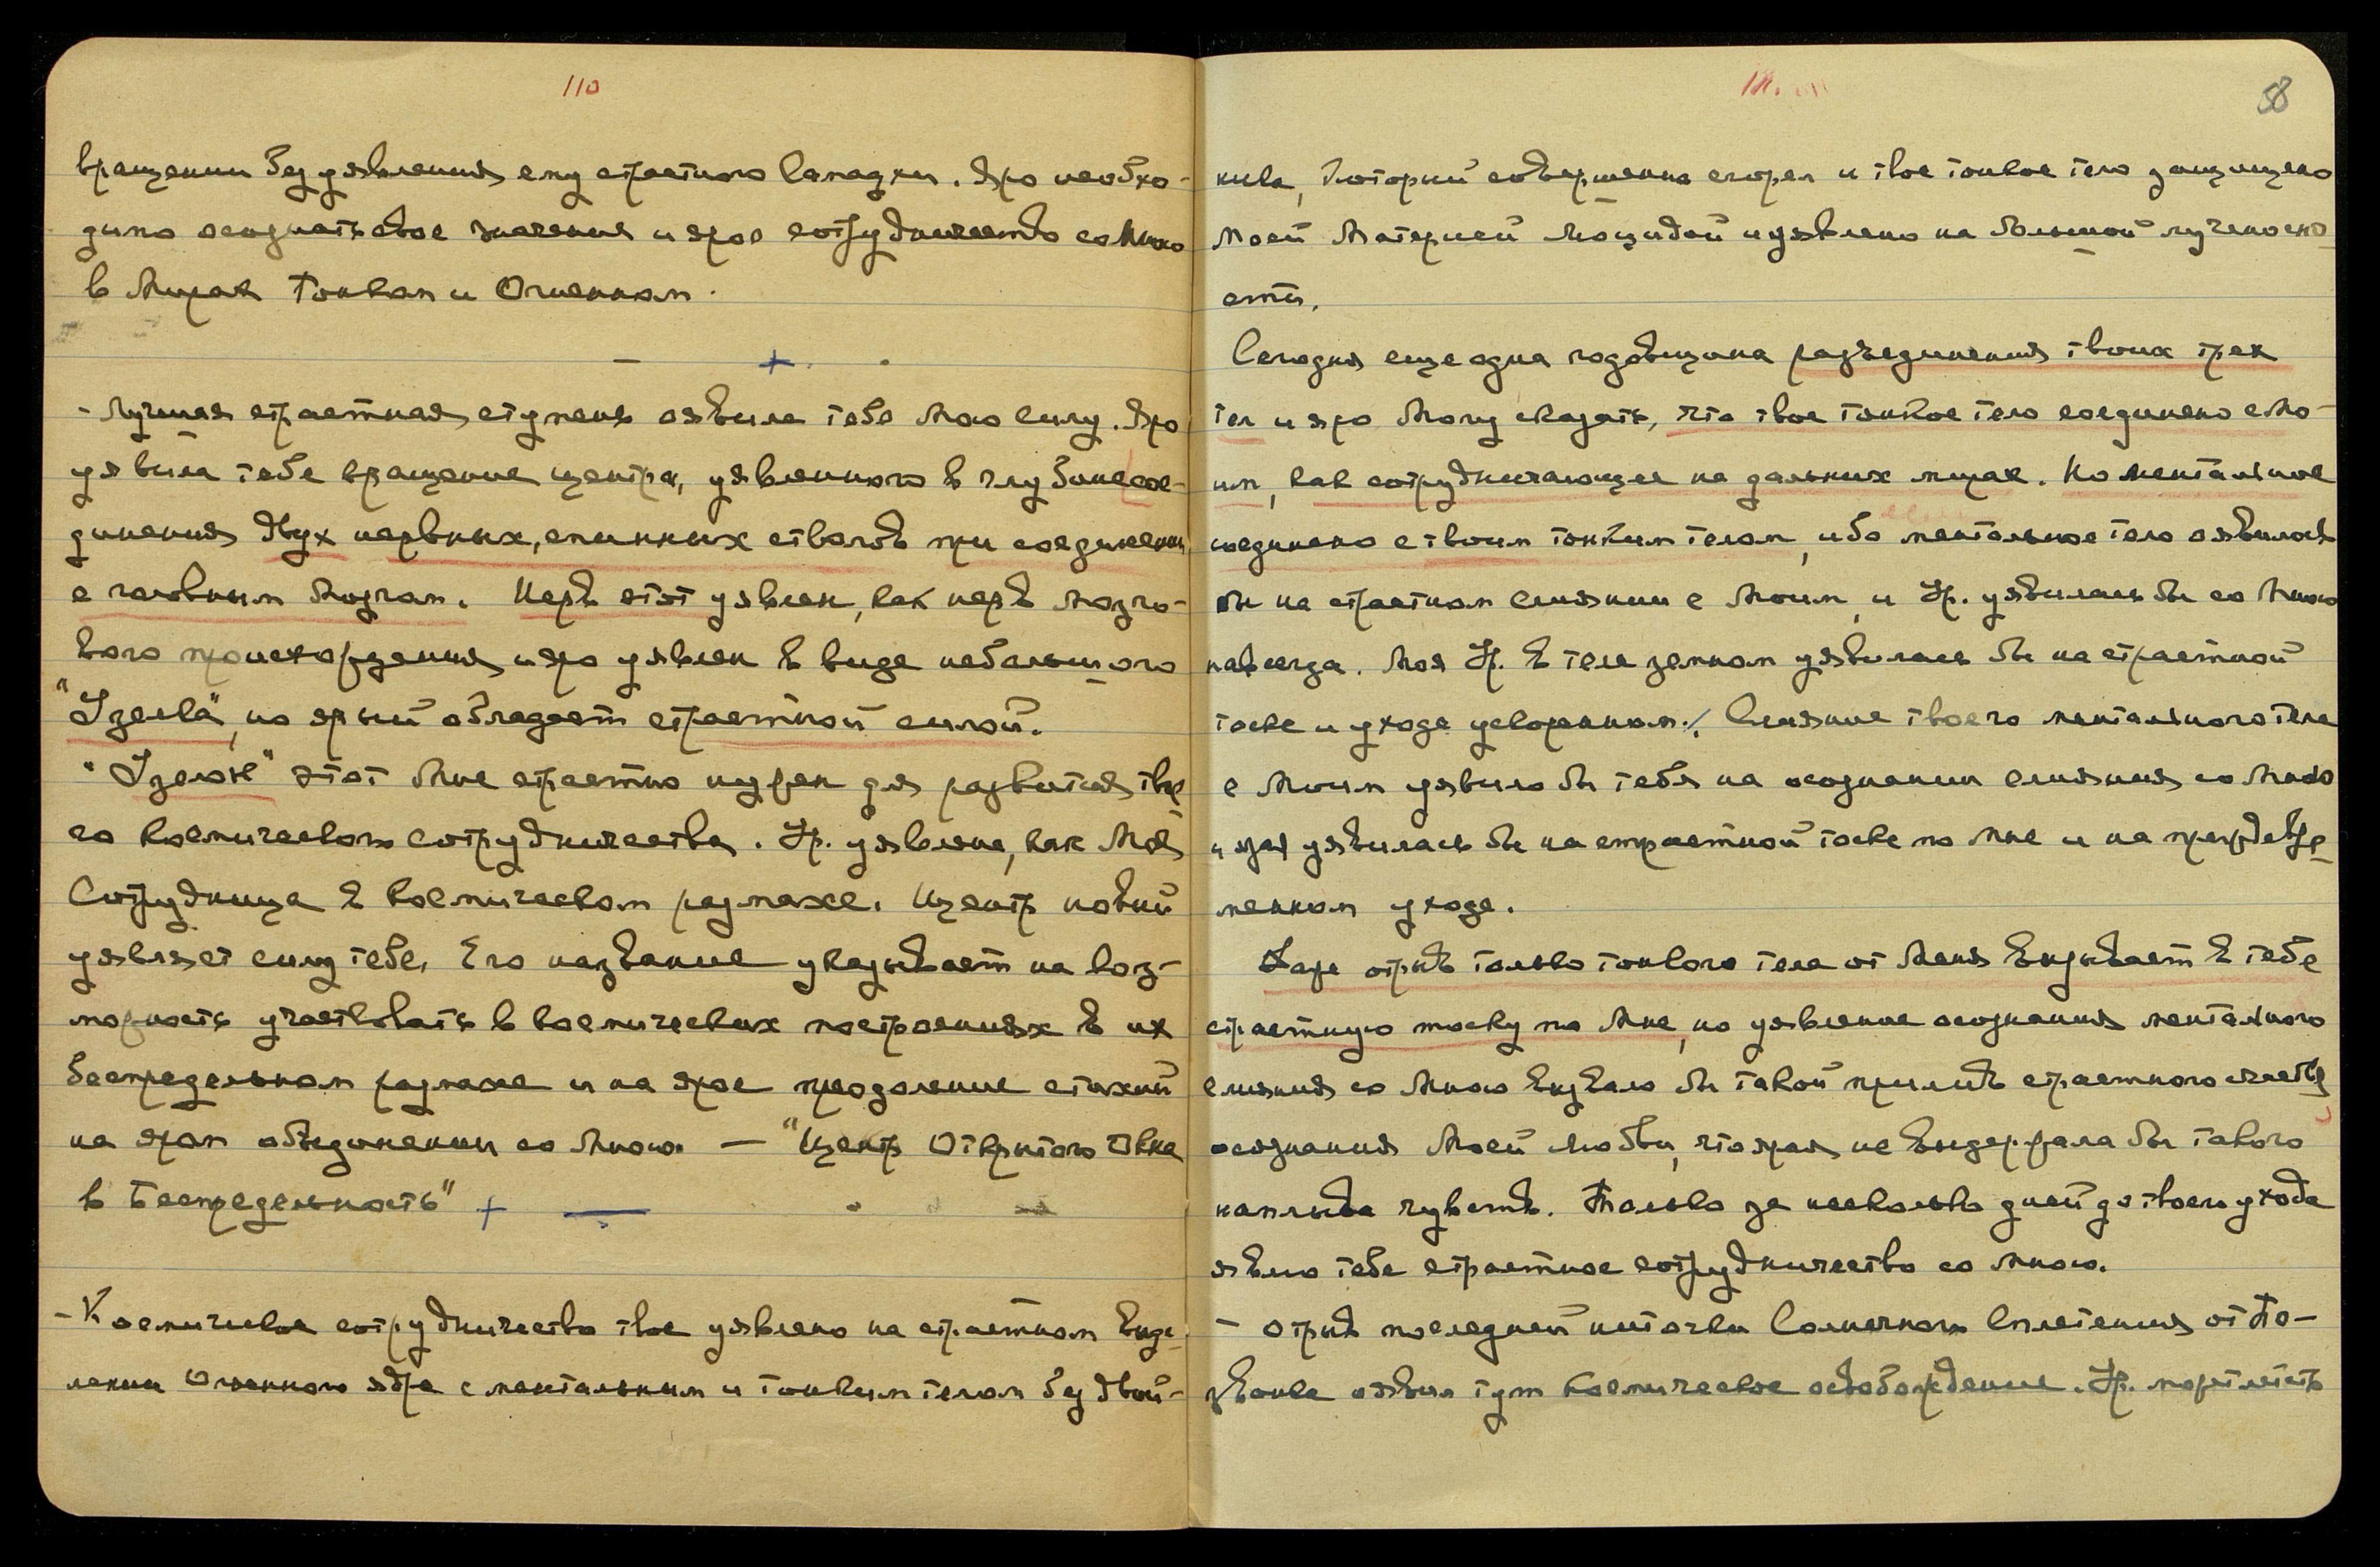 110
вращении без уявления ему страстного Самадхи. Яро необхо-
димо осознать свое значение и ярое сотрудничество со Мною
в Мирах Тонком и Огненном.
— +. .
- Лучшая страстная ступень оявила тебе Мою Силу. Яро
уявила тебе вращение центра, уявленного в глубине сое-
динения двух нервных, спинных стволов при соединении
с головным Мозгом. Нерв этот уявлен, как нерв Мозго-
вого происхождения и яро уявлен в виде небольшого
"Узелка", но ярый обладает страстной силой.
"Узелок" этот Мне страстно нужен для развития твое-
го космического сотрудничества. Ур. уявлена, как Моя
Сотрудница в космическом размахе. И центр новый
уявляет силу тебе. Его название указывает на воз-
можность участвовать в космических построениях в их
беспредельном размахе и на ярое преодоление стихий
на яром объединении со Мною. — "Центр Открытого Окна
в Беспредельность" + —
- Космическое сотрудничество твое уявлено на страстном выде-
лении Огненного ядра с ментальным и тонким телом без двой-
58
ника, который совершенно сгорел и твое тонкое тело защищено
Моей Материей Люцидой и уявлено на большой лученосно-
сти.
Сегодня еще одна годовщина разъединения твоих трех
тел и яро Могу сказать, что твое тонкое тело соединено с Мо-
им, как сотрудничающее на дальних мирах. Но ментальное
соединено с твоим тонким телом, ибо ментальное тело оявилось
бы на страстном слиянии с Моим, и Ур. уявилась бы со Мною
навсегда. Моя Ур. в теле земном уявилась бы на страстной
тоске и уходе ускоренном. Слияние твоего ментального тела
с Моим уявило бы тебя на осознании слияния со Мною
и ярая уявилась бы на страстной тоске по Мне и на преждевре-
менном уходе.
Даже отрыв только тонкого тела от Меня вызывает в тебе
страстную тоску по Мне, но уявление осознания ментального
слияния со Мною вызвало бы такой прилив страстного счастья
осознания Моей Любви, что ярая не выдержала бы такого
наплыва чувств. Только за несколько дней до твоего ухода
явлю тебе страстное сотрудничество со мною.
- Отрыв последней ниточки Солнечного Сплетения от По-
звонка оявил тут космическое освобождение. Ур. может летать